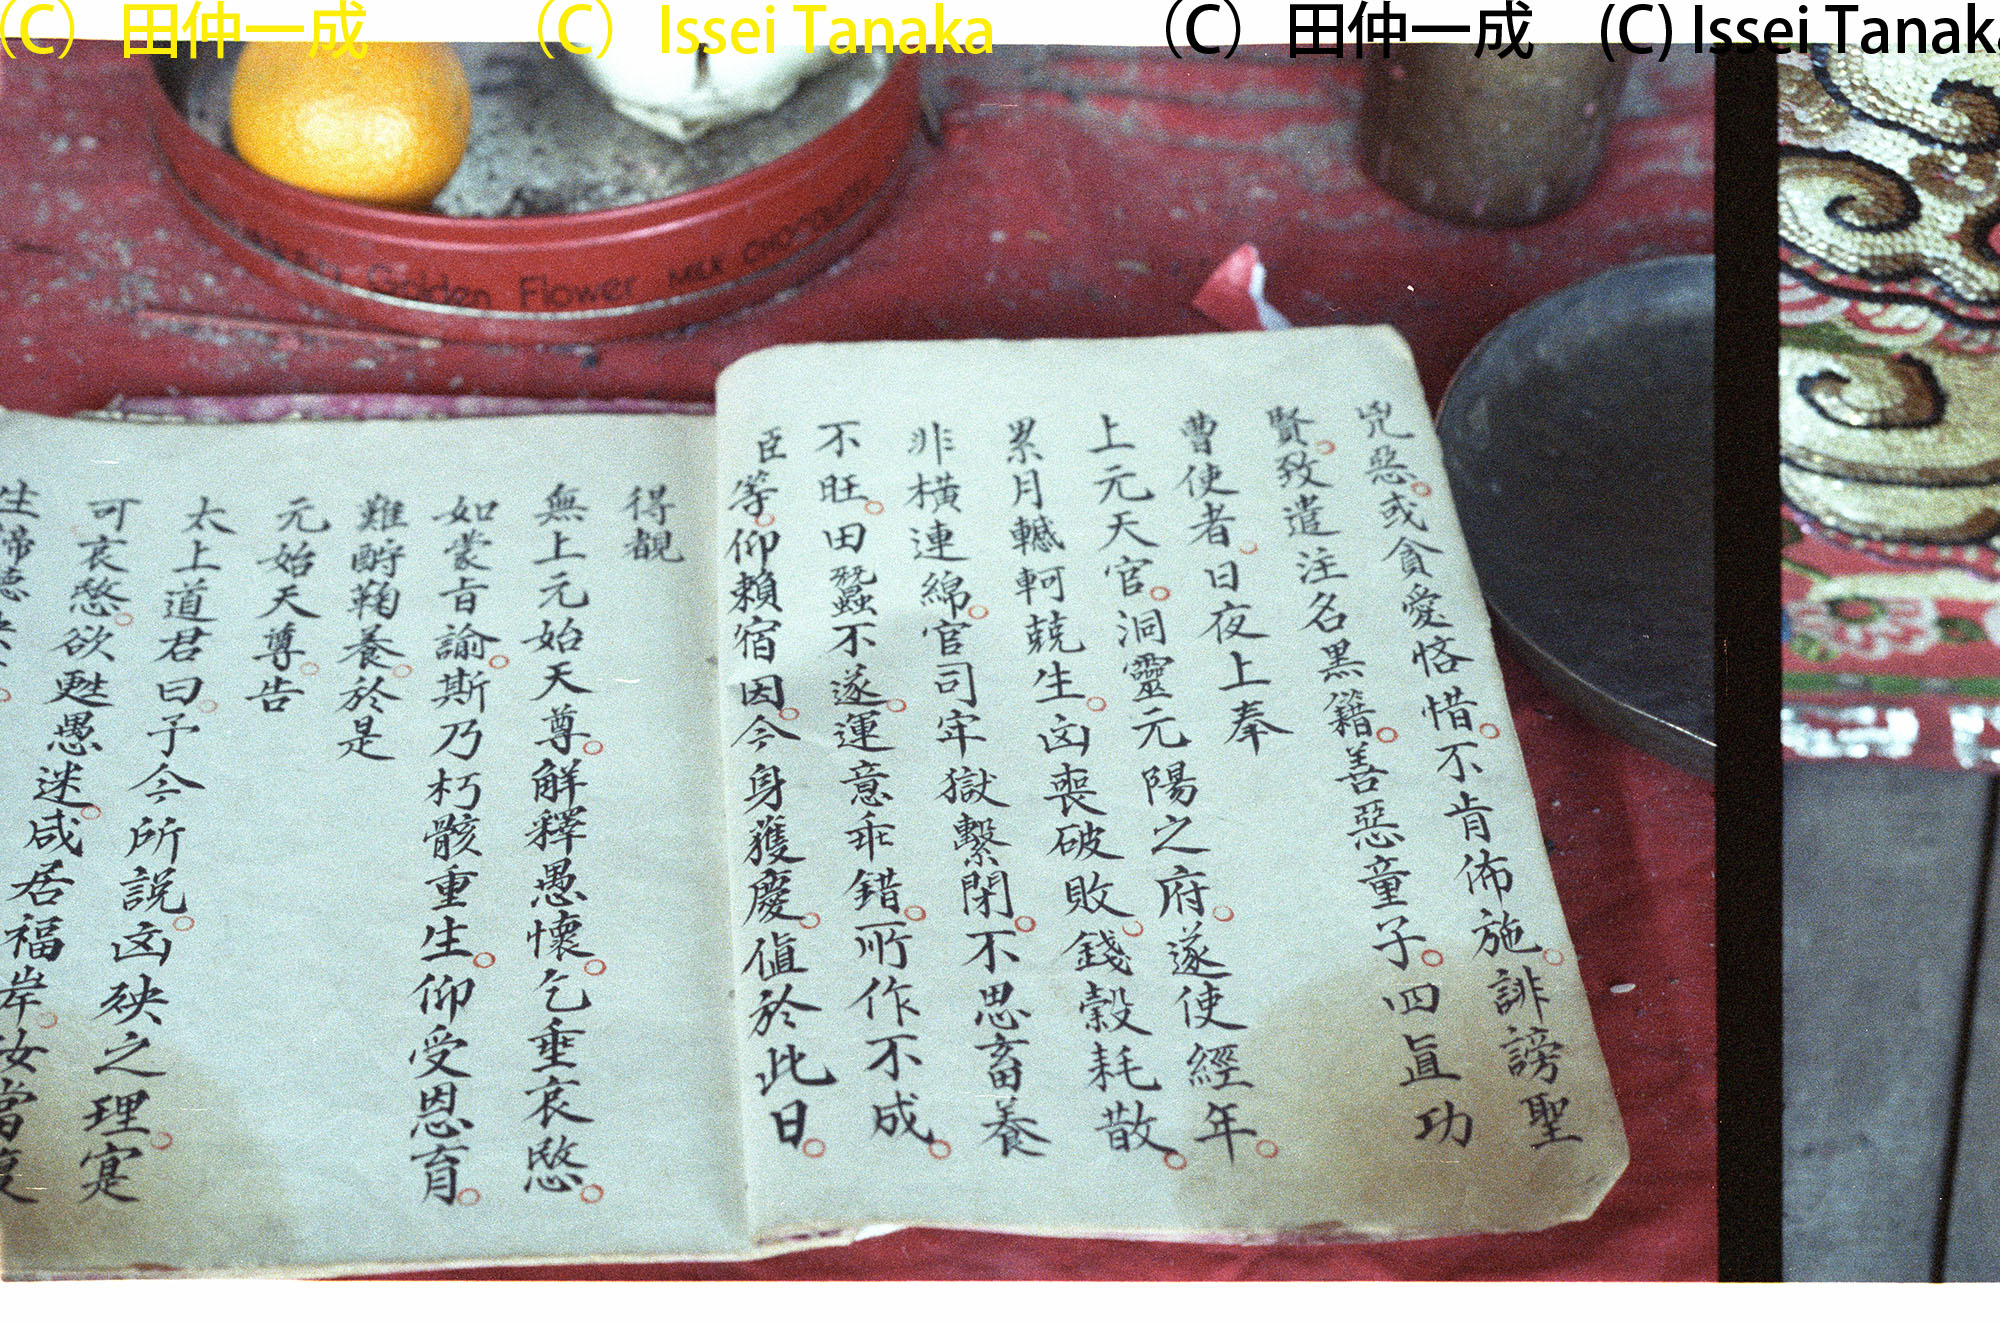 (C) 田仲一成 (C) Issei Tanaka (C) 田仲一成 (C) Issei Tanaka
Golden Flower MILK CHOCOLATE
兇惡。或貪愛悋惜。不肯佈施。誹謗聖
賢。致遣注名黑籍。善惡童子。四眞功
曹使者。日夜上奉
上元天官。洞靈元陽之府。遂使經年。
累月轗軻兢生。凶喪破敗。錢穀耗散。
非橫連綿。官司牢獄繫閉。不思畜養
不旺。田蠶不遂。運意乖錯。所作不成。
臣等。仰賴宿因。今身獲慶。値於此日。
得覩
無上元始天尊。解釋愚懷。乞垂哀愍。
如蒙旨諭。斯乃朽骸重生。仰受恩育。
難酧鞠養。於是
元始天尊。告
太上道君曰。予今所説。凶殃之理。寔
可哀愍。欲甦愚迷。咸居福岸。汝當復
生